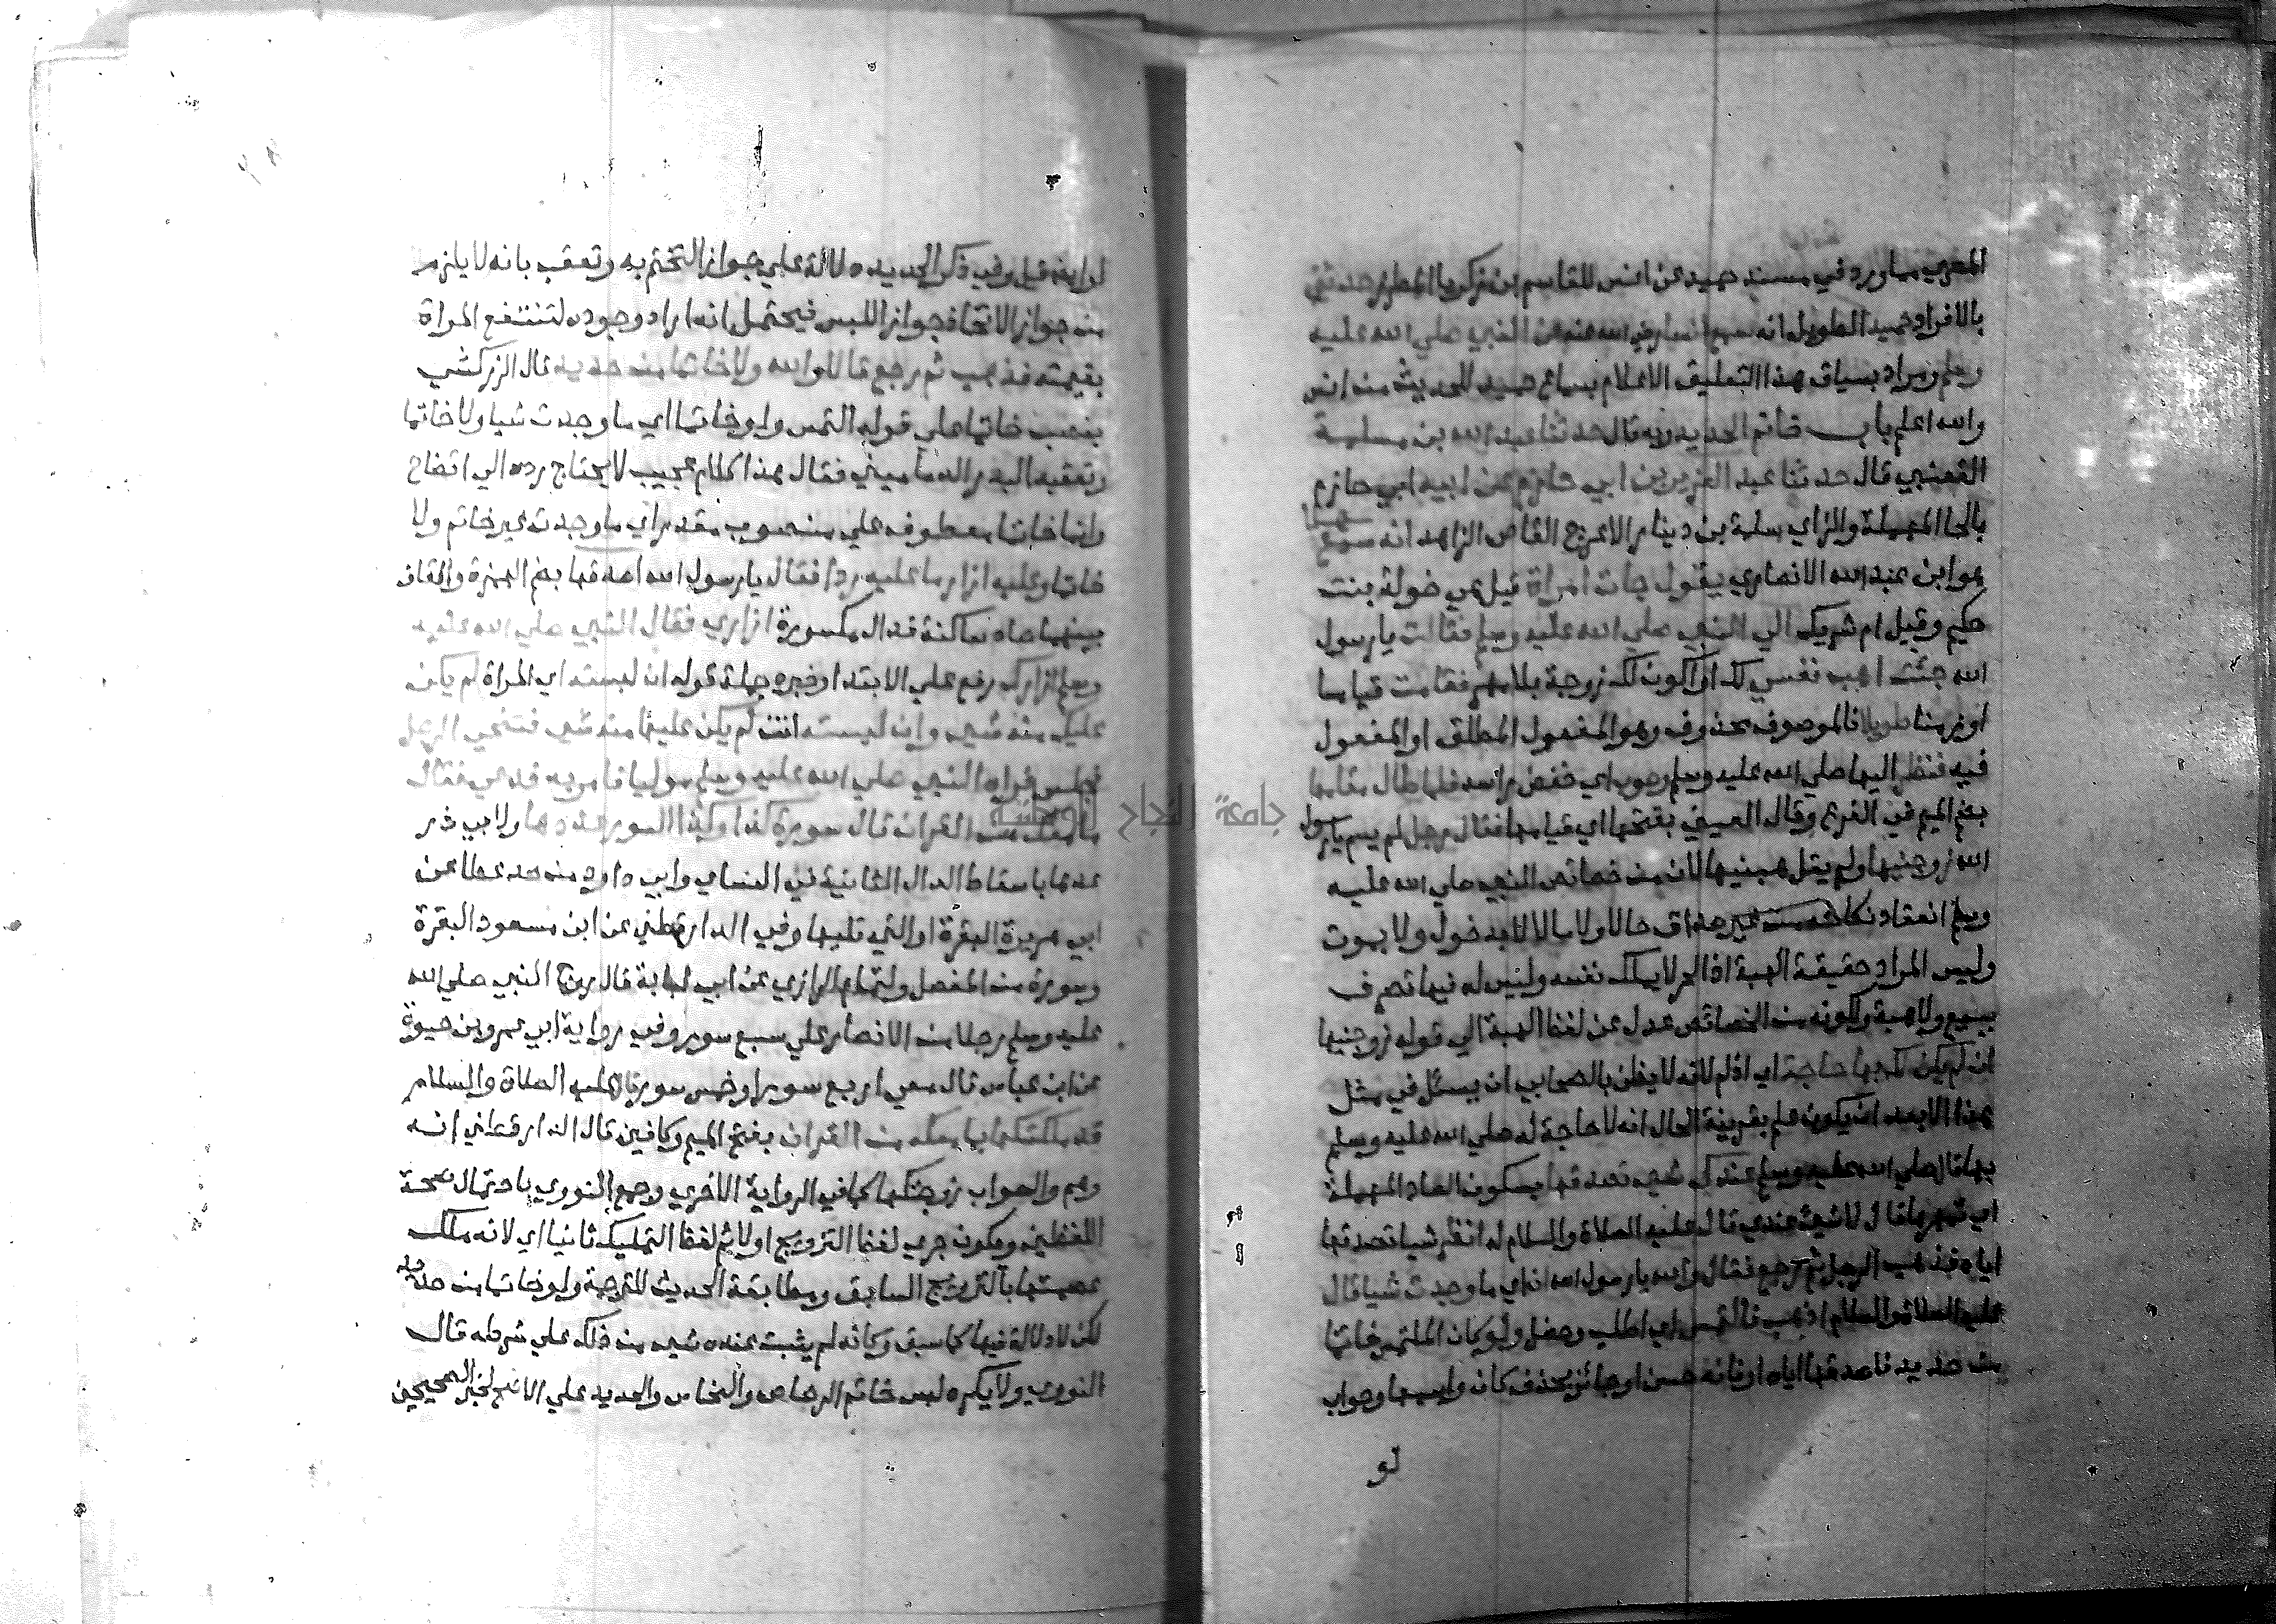 المعري مما ورد في مسند حميد عن انس للقاسم بن زكريا المطرز حدثني
بالافراد حميد الطويل انه سمع انسا رضي الله عنه عن النبي صلي الله عليه
وسلم ومراد بسياق هذا التعليق الاعلام بسماع حميد للحديث من انس
والله اعلم باب خاتم الحديد وبه قال حدثنا عبد الله بن مسلمة
القعنبي قال حدثنا عبد العزيز بن ابي حازم عن ابيه ابي حازم
بالحا المهملة والزاي سلمة بن دينار الاعرج القاص الزاهد انه سمع سهلا
هو ابن عبد الله الانصاري يقول جات امراة قيل هي خولة بنت
حكيم وقيل ام شريك الي النبي صلي الله عليه وسلم فقالت يا رسول
الله جئت اهب نفسي لك اي اكون لك زوجة بلا مهر فقامت قياما
او زمنا طويلا فالموصوف محذوف وهو المفعول المطلق او المفعول
فيه فنظر اليها صلي الله عليه وسلم وصوب اي خفض راسه فلما طال مقامها
بضم الميم في الفرع وقال العيني بفتحها اي قيامها فقال رجل لم يسم يا رسول
الله زوجنيها ولم يقل هبنيها لان من خصائص النبي صلي الله عليه
وسلم انعقاد نكاحه من غير صداق حالا ولا مالا لا بدخول ولا بموت
وليس المراد حقيقة الهبة اذ الحر لا يملك نفسه وليس له فيها تصرف
ببيع ولا هبة ولكونه من الخصائص عدل عن لفظ الهبة الي قوله زوجنيها
ان لم يكن لك بها حاجة اي اذ لم لانه لا يظن بالصحابي ان يسئل في مثل
هذا الا بعد ان يكون علم بقرينة الحال انه لا حاجة له صلي الله عليه وسلم
بها قال صلي الله عليه وسلم عندك شيء تصدقها بسكون الصاد المهملة
اي تمهرها قال لا شيء عندي قال عليه الصلاة والسلام له انظر شيا تصدقها
اياه فذهب الرجل ثم رجع فقال والله يا رسول الله اي ما وجدت شيا قال
عليه الصلاة والسلام اذهب فالتمس اي اطلب وحصل ولو كان الملتمس خاتما
من حديد فاصدقها اياه اي فانه حسن او جائز بحذف كان واسمها وجواب
لو
لو ايضا قيل وفي ذكر الحديد دلالة علي جواز التختم به وتعقب بانه لا يلزم
من جواز الاتخاذ جواز اللبس فيحتمل انه اراد وجوده لتنتفع المراة
بقيمته فذهب ثم رجع قال لا والله ولا خاتما من حديد قال الزركشي
بنصب خاتما علي قوله التمس ولو خاتما اي ما وجدت شيا ولا خاتما
وتعقبه البدر الدماميني فقال هذا كلام عجيب لا يحتاج رده الي اتضاح
وانما خاتما معطوف علي منصوب مقدر اي ما وجدت غير خاتم ولا
خاتما وعليه ازار ما عليه ردا فقال يا رسول الله اصدقها بضم الهمزة والقاف
بينهما صاد ساكنة فدال مكسورة ازاري فقال النبي صلي الله عليه
وسلم ازارك رفع علي الابتدا وخبره جملة قوله ان لبسته اي المراة لم يكن
عليك منه شيء وان لبسته انت لم يكن عليها منه شيء فتنحي الرجل
فجلس فراه النبي صلي الله عليه وسلم موليا فامر به فدعي فقال
ما معك من القران قال سورة كذا وكذا السور عددها ولابي ذر
عدها باسقاط الدال الثانية في النساي وابي داود من حد عطا عن
ابي هريرة البقرة او التي تليها وفي الدارقطني عن ابن مسعود البقرة
وسورة من المفصل ولتمام الرازي عن ابي امامة قال زوج النبي صلي الله
عليه وسلم رجلا من الانصار علي سبع سور وفي رواية ابي عمرو بن حيوة
عن ابن عباس قال معي اربع سور او خمس سور قال عليه الصلاة والسلام
قد ملكتكها بما معك من القران بفتح الميم وكافين قال الدارقطني انه
وهم والصواب زوجتكها كما في الرواية الاخري وجمع النووي باحتمال صحة
اللفظين ويكون جري لفظ التزويج اولا ثم لفظ التمليك ثانيا اي لانه ملك
عصمتها بالتزويج السابق ومطابقة الحديث للترجمة ولو خاتما من حديد
لكن لا دلالة فيها كما سبق وكانه لم يثبت عنده شيء من ذلك علي شرطه قال
النووي ولا يكره لبس خاتم الرصاص والنحاس والحديد علي الاصح لخبر الصحيحين
جامعة النجاح الوطنية